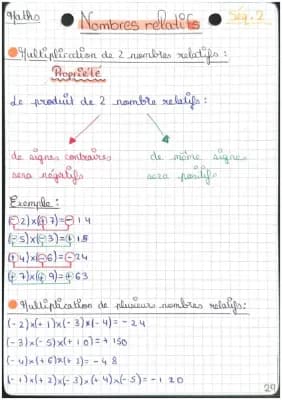 Maths
Nombres relatifs
Séq. 2
Multiplication de 2 nombres relatifs :
Propriété
Le produit de 2 nombre relatifs :
de signes contraires
sera négatifs
de même signe
sera positifs
Exemple :
(-2)x(+7)=-14
(-5)x(-3)=+15
(+4)x(-6)=-24
(+7)x(+9)=+63
Multiplication de plusieur nombres relatifs:
(-2)x(+1)x(-3)x(-4)=-24
(-3)x(-5)x(+10)=+150
(-4)x(+6)x(+2)=-48
(-1)x(+2)x(-3)x(+4)x(-5)=-120
29